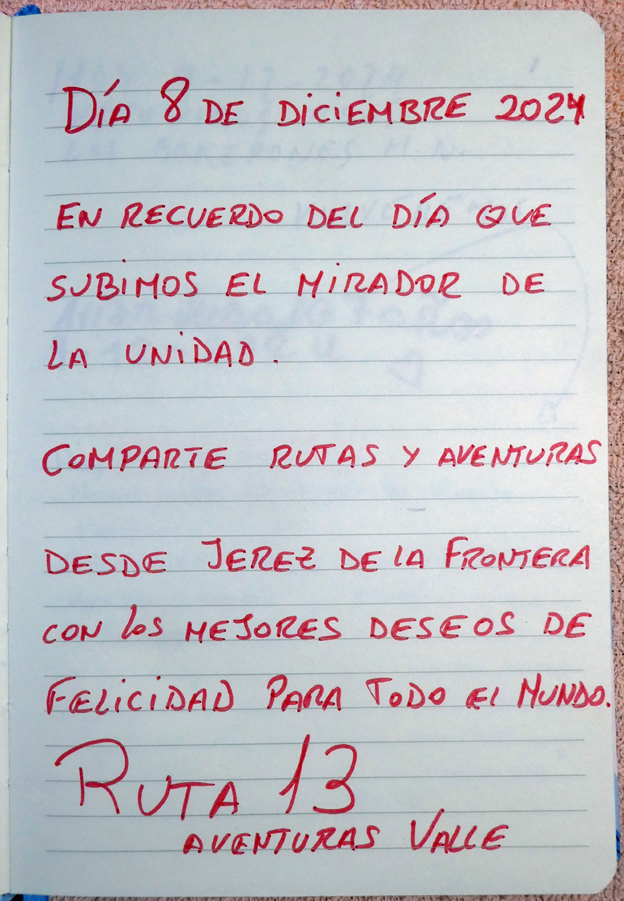 DÍA 8 DE DICIEMBRE 2024
EN RECUERDO DEL DÍA QUE
SUBIMOS EL MIRADOR DE
LA UNIDAD.
COMPARTE RUTAS Y AVENTURAS
DESDE JEREZ DE LA FRONTERA
CON LOS MEJORES DESEOS DE
FELICIDAD PARA TODO EL MUNDO.
RUTA 13
AVENTURAS VALLE